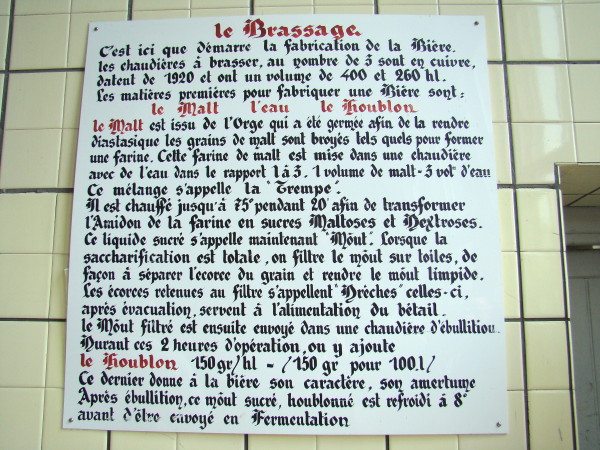 le Brassage
C'est ici que démarre la fabrication de la Bière.
les chaudières à brasser, au nombre de 3 sont en cuivre,
datent de 1920 et ont un volume de 400 et 260 hl.
Les matières premières pour fabriquer une Bière sont:
le Malt l'eau le Houblon
le Malt est issu de l'Orge qui a été germée afin de la rendre
diastasique les grains de malt sont broyés tels quels pour former
une farine. Cette farine de malt est mise dans une chaudière
avec de l'eau dans le rapport 1 à 3. 1 volume de malt-3 vol d'eau
Ce mélange s'appelle la "Trempe".
Il est chauffé jusqu'à 75° pendant 20' afin de transformer
l'Amidon de la farine en sucres Maltoses et Dextroses.
Ce liquide sucré s'appelle maintenant "Môut". Lorsque la
saccharification est totale, on filtre le môut sur toiles, de
façon à séparer l'ecorce du grain et rendre le môut limpide.
Les écorces retenues au filtre s'appellent "Drèches" celles-ci,
après évacuation, servent à l'alimentation du bétail.
le Môut filtré est ensuite envoyé dans une chaudière d'ébullition.
Durant ces 2 heures d'opération, on y ajoute
le Houblon 150gr/hl - (150 gr pour 100.l)
Ce dernier donne à la bière son caractère, son amertume
Après ébullition, ce môut sucré, houblonné est refroidi à 8°
avant d'être envoyé en Fermentation